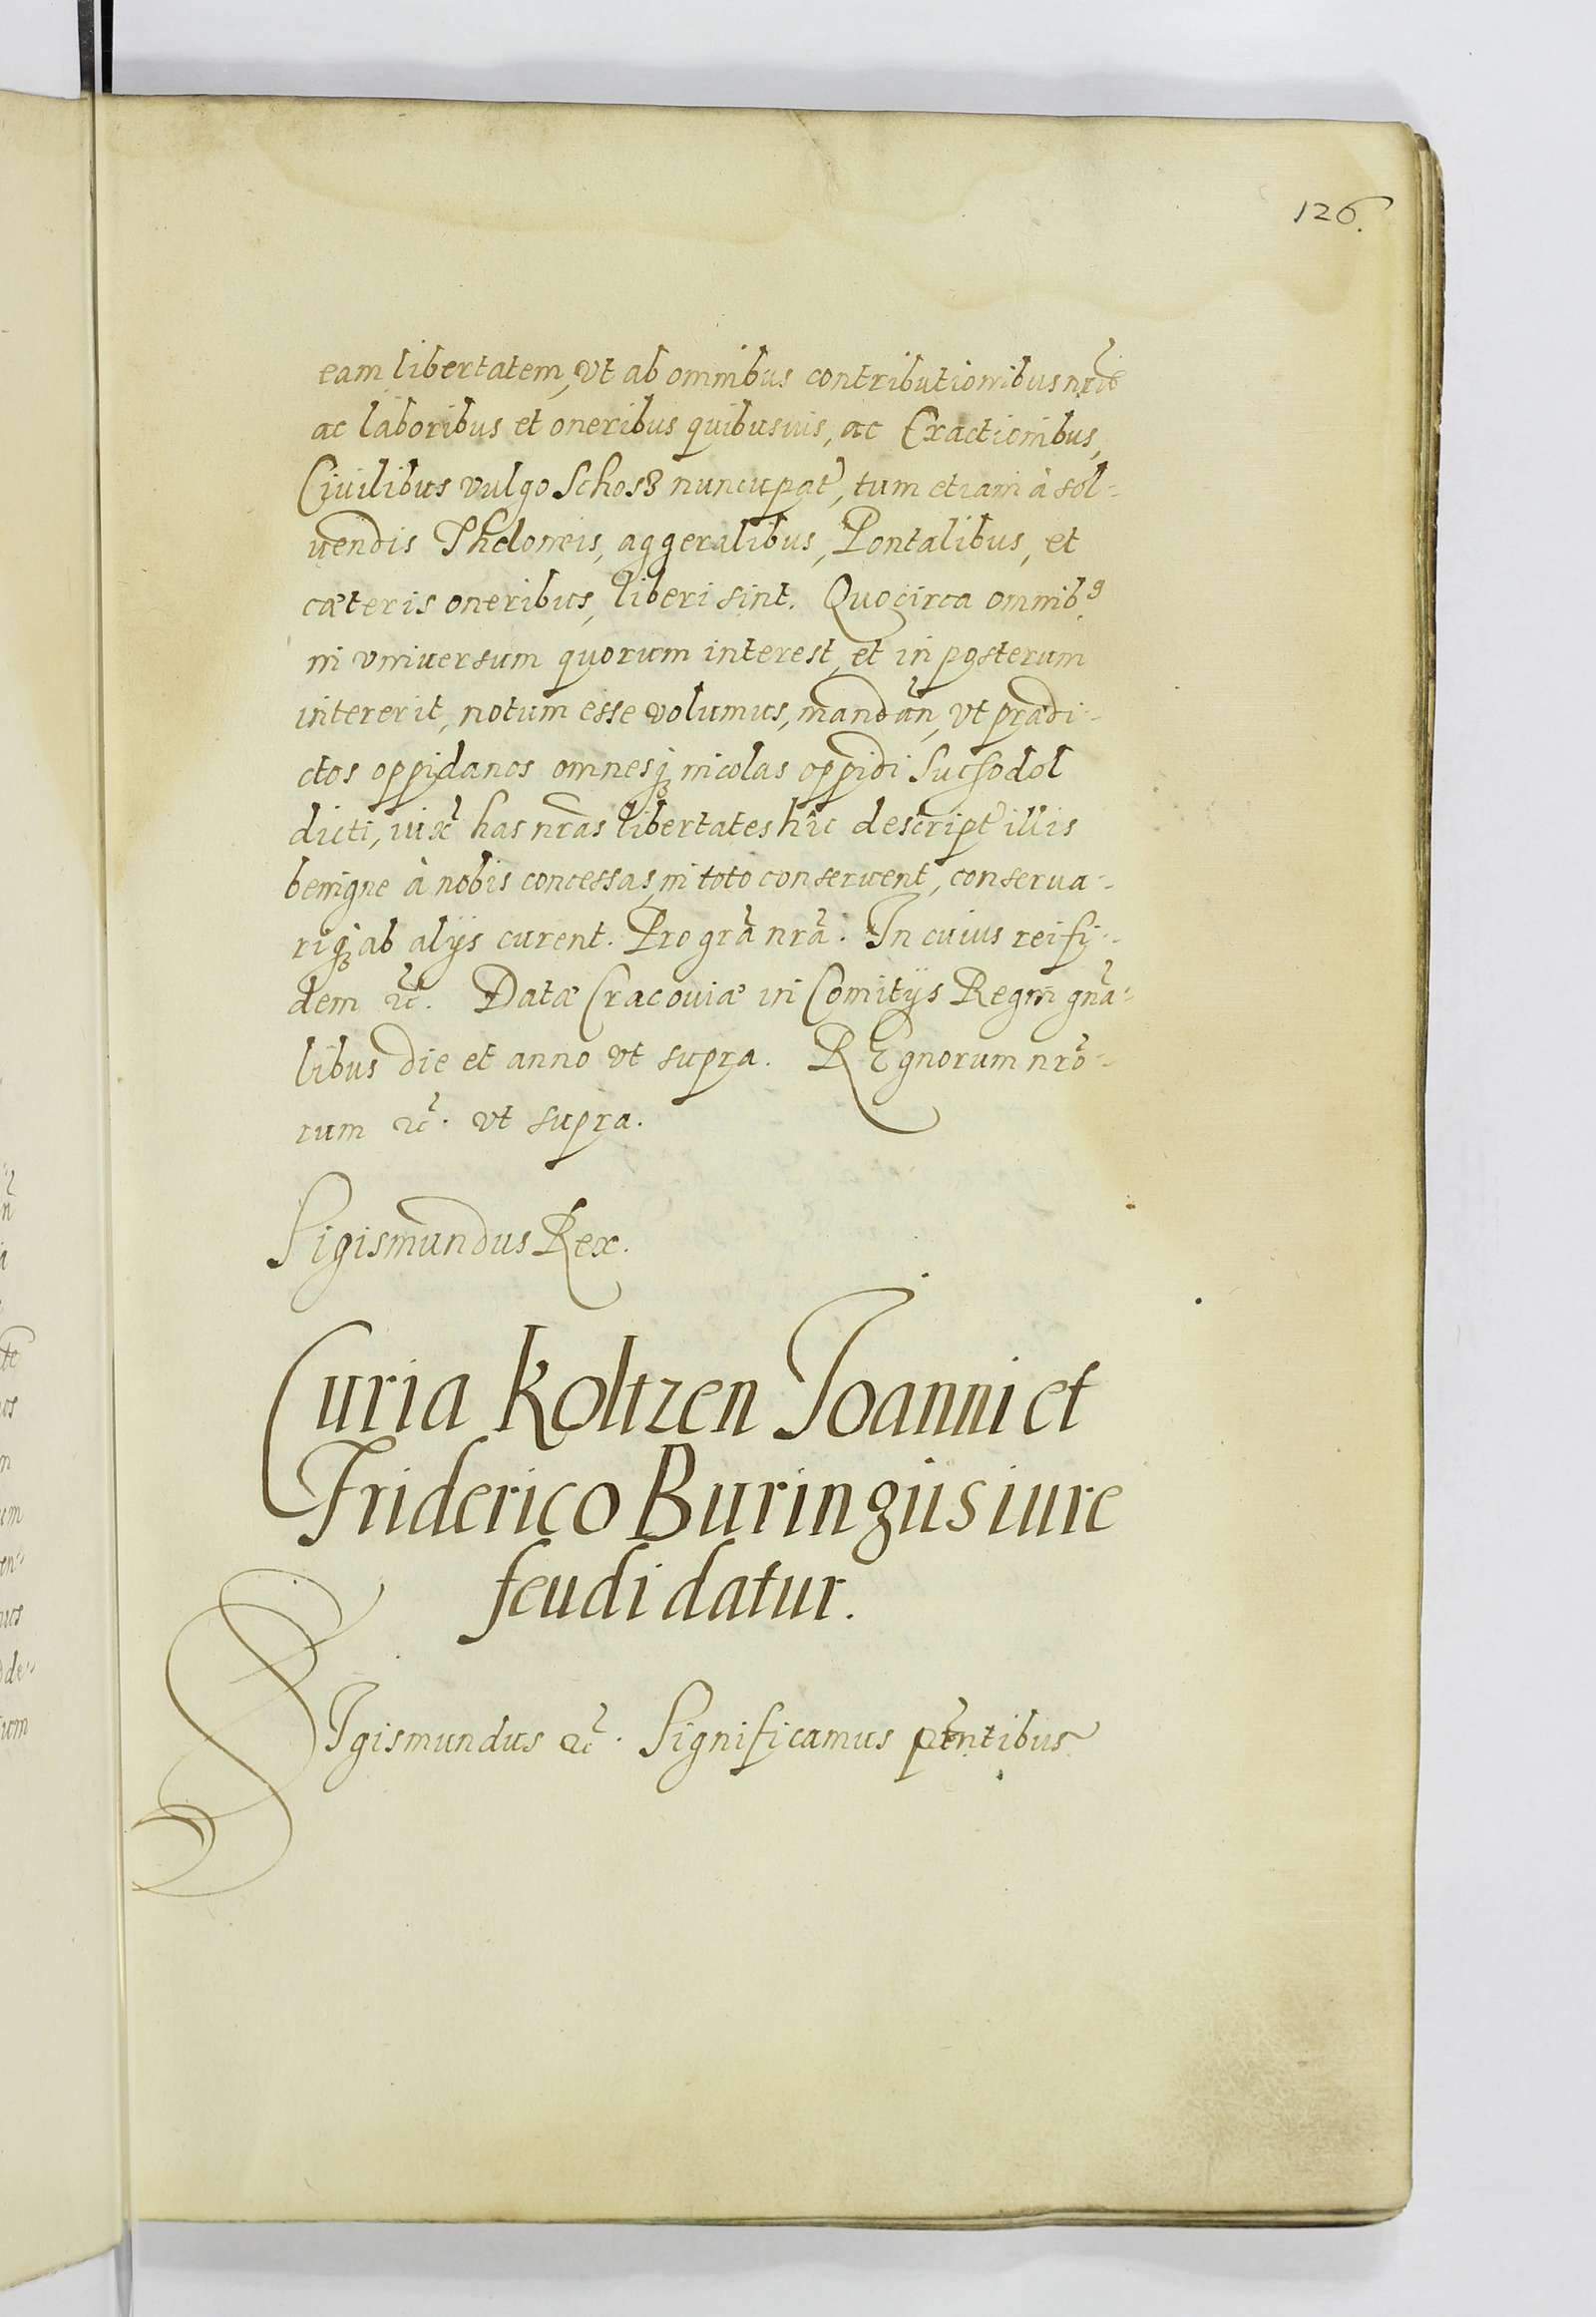 126.
eam libertatem, vt ab omnibus contributionibus nr̃is
ac laboribus et oneribus quibusuis, ac Exactionibus,
Ciuilibus vulgo Schos8 nuncupat̃, tum etiam à sol-
uendis Theloneis, aggeralibus, Pontalibus, et
cæteris oneribus, liberi sint. Quocirca omnib9
in vniuersum quorum interest, et in posterum
intererit, notum esse volumus, mandañ, vt prædi-
ctos oppidanos omnesq̃ incolas oppidi Suchodol
dicti, iux̃ has nr̃as libertates hic descript̃ illis
benigne à nobis concessas, in toto conseruent, conserua-
riq̃ ab alijs curent. Pro gr̃a nr̃a. In cuius rei fi-
dem ꝛc̃. Datæ Cracouiæ in Comitijs Regni gñа-
libus die et anno vt supra. REgnorum nr̃o-
rum ꝛc̃. vt supra.
Sigismundus Rex.
Curia Koltzen Joanni et
Friderico Buringiis iure
feudi datur.
SIgismundus ꝛc̃. Significamus p̃ntibus